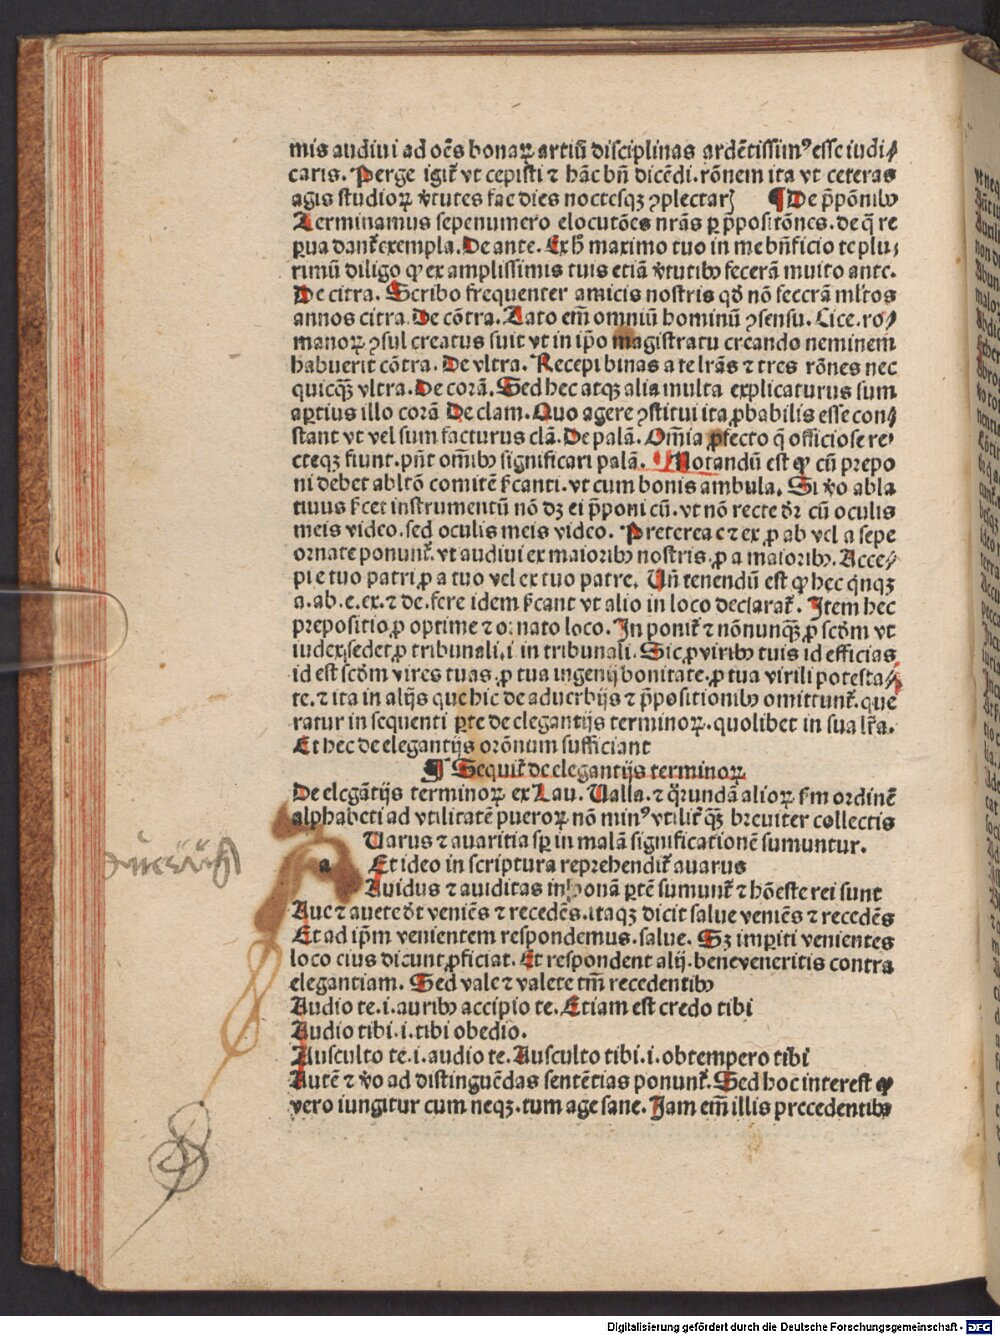 mis audiui ad oēs bonaꝝ artiū disciplinas ardētissimꝰ esse iudi⸗
caris. Perge igit̃ vt cepisti ⁊ hāc bñ dicēdi. rōnem ita vt ceteras
agis studioꝝ v̄tutes fac dies noctesqꝫ ꝯplectarꝭ ¶ De p̄pōnibꝰ
Terminamus sepenumero elocutōes nr̄as ꝑ p̄positōnes. de q̄ re
ꝑua dant̃ exempla. De ante. Ex hͦ maximo tuo in me bn̄ficio te plu⸗
rimū diligo ꝙ ex amplissimis tuis etiā v̄tutibꝰ fecerā multo ante.
De citra. Scribo frequenter amicis nostris qd̄ nō feecrā ml̃tos
annos citra. De cōtra. Tato em̄ omniū hominū ꝯsensu. Cice. ro⸗
manoꝝ ꝯsul creatus fuit vt in ip̄o magistratu creando neminem
habuerit cōtra. De vltra. Recepi binas a te lr̄as ⁊ tres rōnes nec
quicqꝫ̄ vltra. De corā. Sed hec atqꝫ alia multa explicaturus sum
aꝑtius illo corā De clam. Quo agere ꝯstitui ita ꝓbabilis esse con⸗
stant vt vel sum facturus clā. De palā. Om̄ia ꝓfecto q̄ officiose re⸗
cteqꝫ fiunt. pn̄t om̄ibꝰ significari palā. ¶ Notandū est ꝙ cū prepo
ni debet abltō comitē s̄canti. vt cum bonis ambula. Si v̄o abla
tiuus s̄cet instrumentū nō dꝫ ei p̄poni cū. vt nō recte dr̄ cū oculis
meis video. sed oculis meis video. Preterea e ⁊ ex ꝓ ab vel a sepe
ornate ponunt̃. vt audiui ex maioribꝰ nostris. ꝓ a maioribꝰ. Acce⸗
pi e tuo patri ꝓ a tuo vel ex tuo patre. Vn̄ tenendū est ꝙ hec qͥnqꝫ
a. ab. e. ex. ⁊ de. fere idem s̄cant vt alio in loco declarat̃. Item hec
prepositio ꝓ optime ⁊ ornato loco. In ponit̃ ⁊ nōnunqꝫ̄ ꝓ scd̄m vt
iudex sedet ꝓ tribunali. i in tribunali. Sic ꝓ viribꝰ tuis id efficias
id est scd̄m vires tuas. ꝓ tua ingenij bonitate. ꝓ tua virili potesta⸗
te. ⁊ ita in alijs que hic de aduerbijs ⁊ p̄positionibꝰ omittunt̃. que
ratur in sequenti ꝑte de elegantijs terminoꝝ. quolibet in sua lr̄a.
Et hec de elegantijs orōnum sufficiant
¶ Sequit̃ de elegantijs terminoꝝ
De elegātijs terminoꝝ ex Lau. Valla. ⁊ qͦrundā alioꝝ s̄m ordinē
alphabeti ad vtilitatē pueroꝝ nō minꝰ vtilit̃ qꝫ̄ breuiter collectis
Varus ⁊ auaritia sꝑ in malā significationē sumuntur.
a Et ideo in scriptura reprehendit̃ auarus
Auidus ⁊ auiditas in bonā ꝑtē sumunt̃ ⁊ hōeste rei sunt
Aue ⁊ auete dr̄t veniēs ⁊ recedēs. itaqꝫ dicit salue veniēs ⁊ recedēs
Et ad ip̄m venientem respondemus. salue. Sꝫ imꝑiti venientes
loco eius dicunt ꝓficiat. Et respondent alij. beneveneritis contra
elegantiam. Sed vale ⁊ valete tm̄ recedentibꝰ
Audio te. i. auribꝰ accipio te. Etiam est credo tibi
Audio tibi. i. tibi obedio.
Ausculto te. i. audio te. Ausculto tibi. i. obtempero tibi
Autē ⁊ v̄o ad distinguēdas sentētias ponunt̃. Sed hoc interest ꝙ
vero iungitur cum neqꝫ. tum age sane. Jam em̄ illis precedentibꝰ
Digitalisierung gefördert durch die Deutsche Forschungsgemeinschaft - DFG